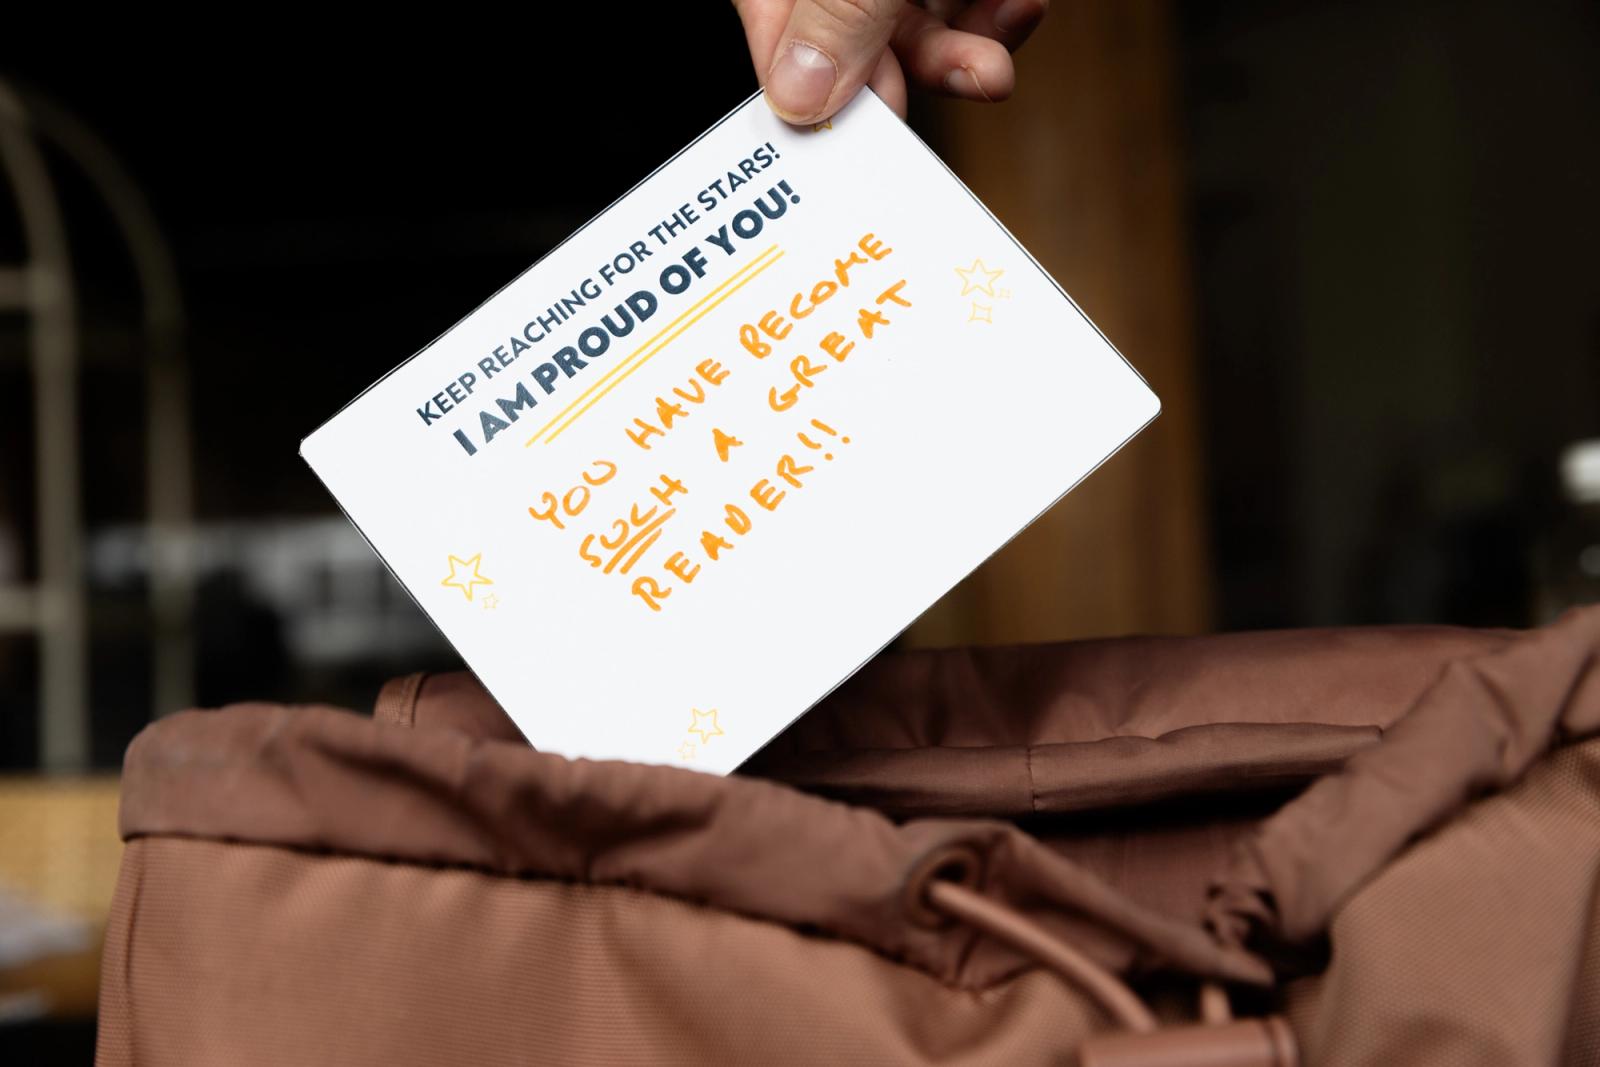 KEEP REACHING FOR THE STARS!
I AM PROUD OF YOU!
YOU HAVE BECOME
SUCH A GREAT
READER!!